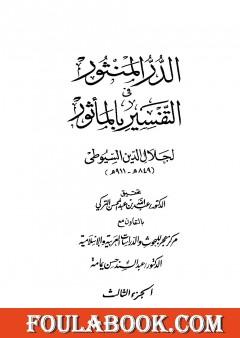 الدر المنثور
في
التفسير بالمأثور
لجلال الدين السيوطي
(٨٤٩هـ - ٩١١هـ)
تحقيق
الدكتور عبد الله بن عبد المحسن التركي
بالتعاون مع
مركز هجر للبحوث والدراسات العربية والإسلامية
الدكتور عبد السند حسن يمامة
الجزء الثالث
FOULABOOK.COM